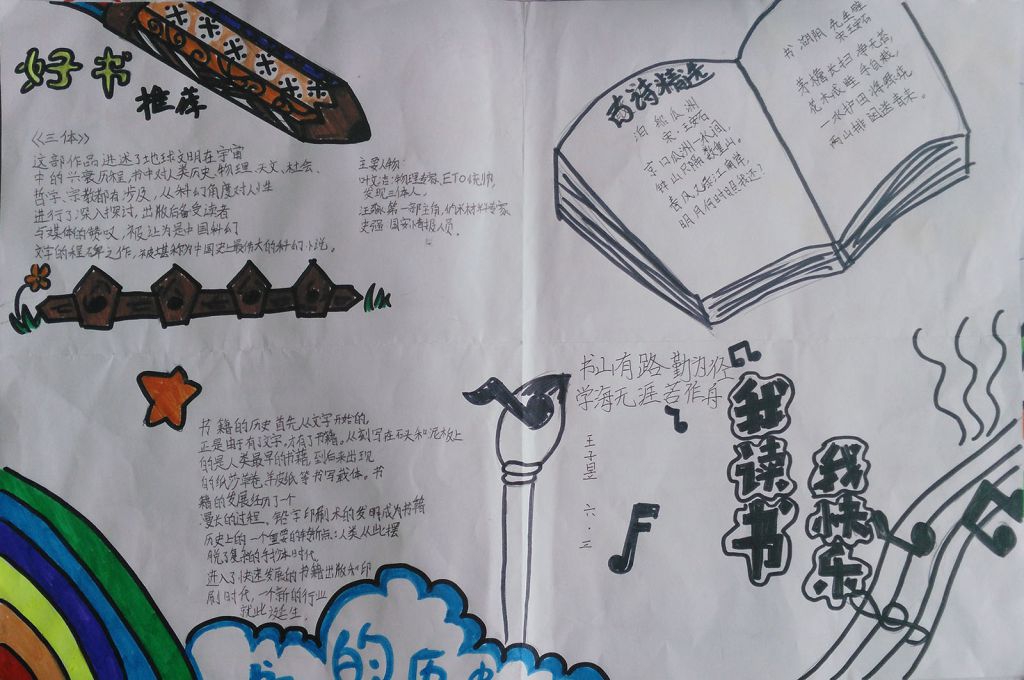 好书
推荐
《三体》
这部作品讲述了地球文明在宇宙
中的兴衰历程,书中对人类历史、物理、天文、社会、
哲学、宗教都有涉及,从科幻角度对人性
进行了深入探讨,出版后备受读者
与媒体的赞叹,被认为是中国科幻
文学的里程碑之作,被堪称为中国史上最伟大的科幻小说。
主要人物:
叶文洁:物理专家,ETO统帅,
发现三体人。
汪淼:第一部主角,纳米材料专家
史强:国安情报人员。
古诗精选
泊船瓜洲
宋·王安石
京口瓜洲一水间,
钟山只隔数重山。
春风又绿江南岸,
明月何时照我还?
书湖阴先生壁
宋王安石
茅檐长扫净无苔,
花木成畦手自栽。
一水护田将绿绕
两山排闼送青来。
书山有路勤为径
学海无涯苦作舟
王子昱 六·三
我读书
我快乐
书籍的历史首先从文字开始的,
正是由于有了文字,才有了书籍。从刻写在石头和泥板上
的是人类最早的书籍,到后来出现
的纸莎草卷、羊皮纸等书写载体。书
籍的发展经历了一个
漫长的过程、铅字印刷术的发明成为书籍
历史上的一个重要的转折点:人类从此摆
脱了复杂的手抄本时代,
进入了快速发展的书籍出版和印
刷时代,一个新的行业
就此诞生。
的历史